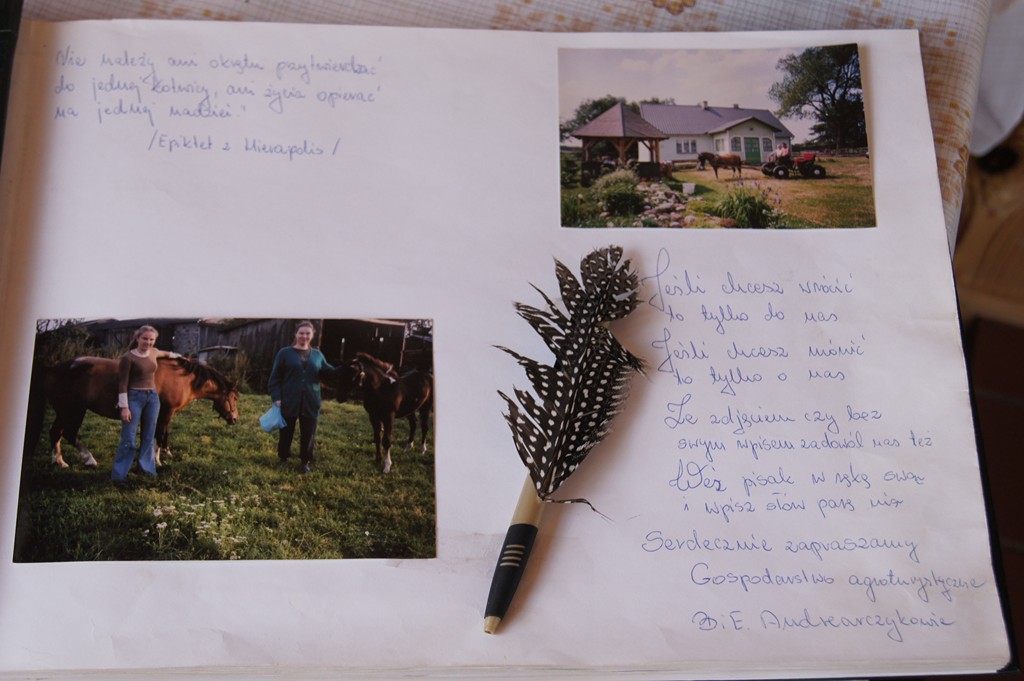 Nie należy ani okrętu przytwierdzać
do jednej kotwicy, ani życia opierać
na jednej nadziei."
/Epiktet z Hierapolis/
Jeśli chcesz wrócić
to tylko do nas
Jeśli chcesz mówić
to tylko o nas
Ze zdjęciem czy bez
swym wpisem zadowól nas też
Weź pisak w rękę swą
i wpisz słów parę nią
Serdecznie zapraszamy
Gospodarstwo agroturystyczne
B.i E. Andrearczykowie